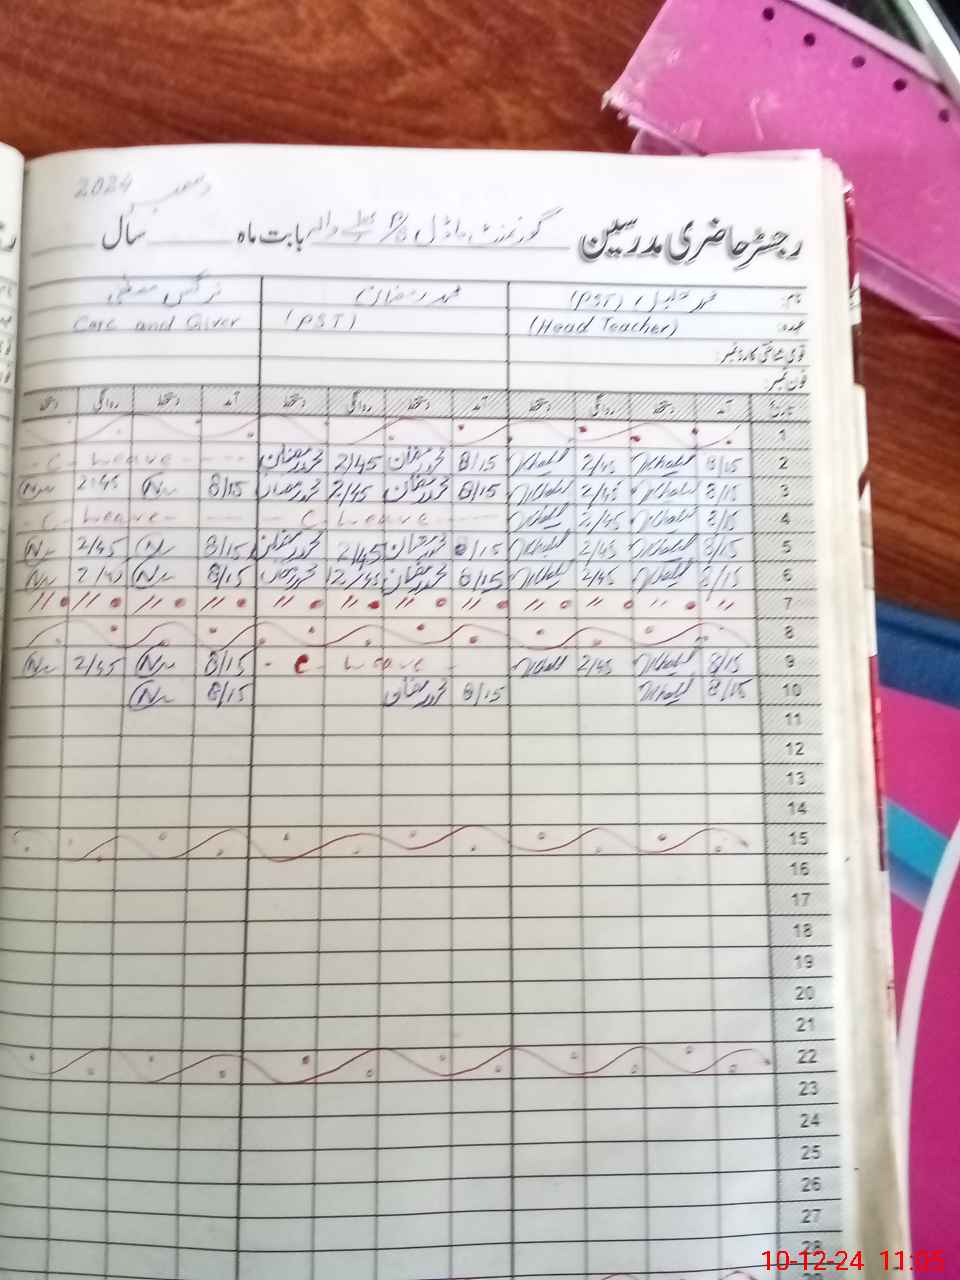 2024 دسمبر
رجسٹر حاضری مدرسین گورنمنٹ ماڈل P/S والہ بابت ماہ سال
نام: محمد خلیل (PST) محمد رمضان نرگس مصطفیٰ
عہدہ: (Head Teacher) (PST) Care and Giver
قومی شناختی کارڈ نمبر:
فون نمبر:
تاریخ آمد دستخط روانگی دستخط آمد دستخط روانگی دستخط آمد دستخط روانگی دستخط
1
2 8/15 Khalil 2/45 Khalil 8/15 محمد رمضان 2/45 محمد رمضان - C - Leave - - - -
3 8/15 Khalil 2/45 Khalil 8/15 محمد رمضان 2/45 محمد رمضان 8/15 2/45
4 8/15 Khalil 2/45 Khalil C Leave - C - Leave -
5 8/15 Khalil 2/45 Khalil 8/15 محمد رمضان 2/45 محمد رمضان 8/15 2/45
6 8/15 Khalil 2/45 Khalil 8/15 محمد رمضان 2/45 محمد رمضان 8/15 2/45
7 // // // // // // // // // // // //
8
9 8/15 Khalil 2/45 Khalil - C - Leave - 8/15 2/45
10 8/15 Khalil 8/15 محمد رمضان 8/15
11
12
13
14
15
16
17
18
19
20
21
22
23
24
25
26
27
28
10-12-24 11:05